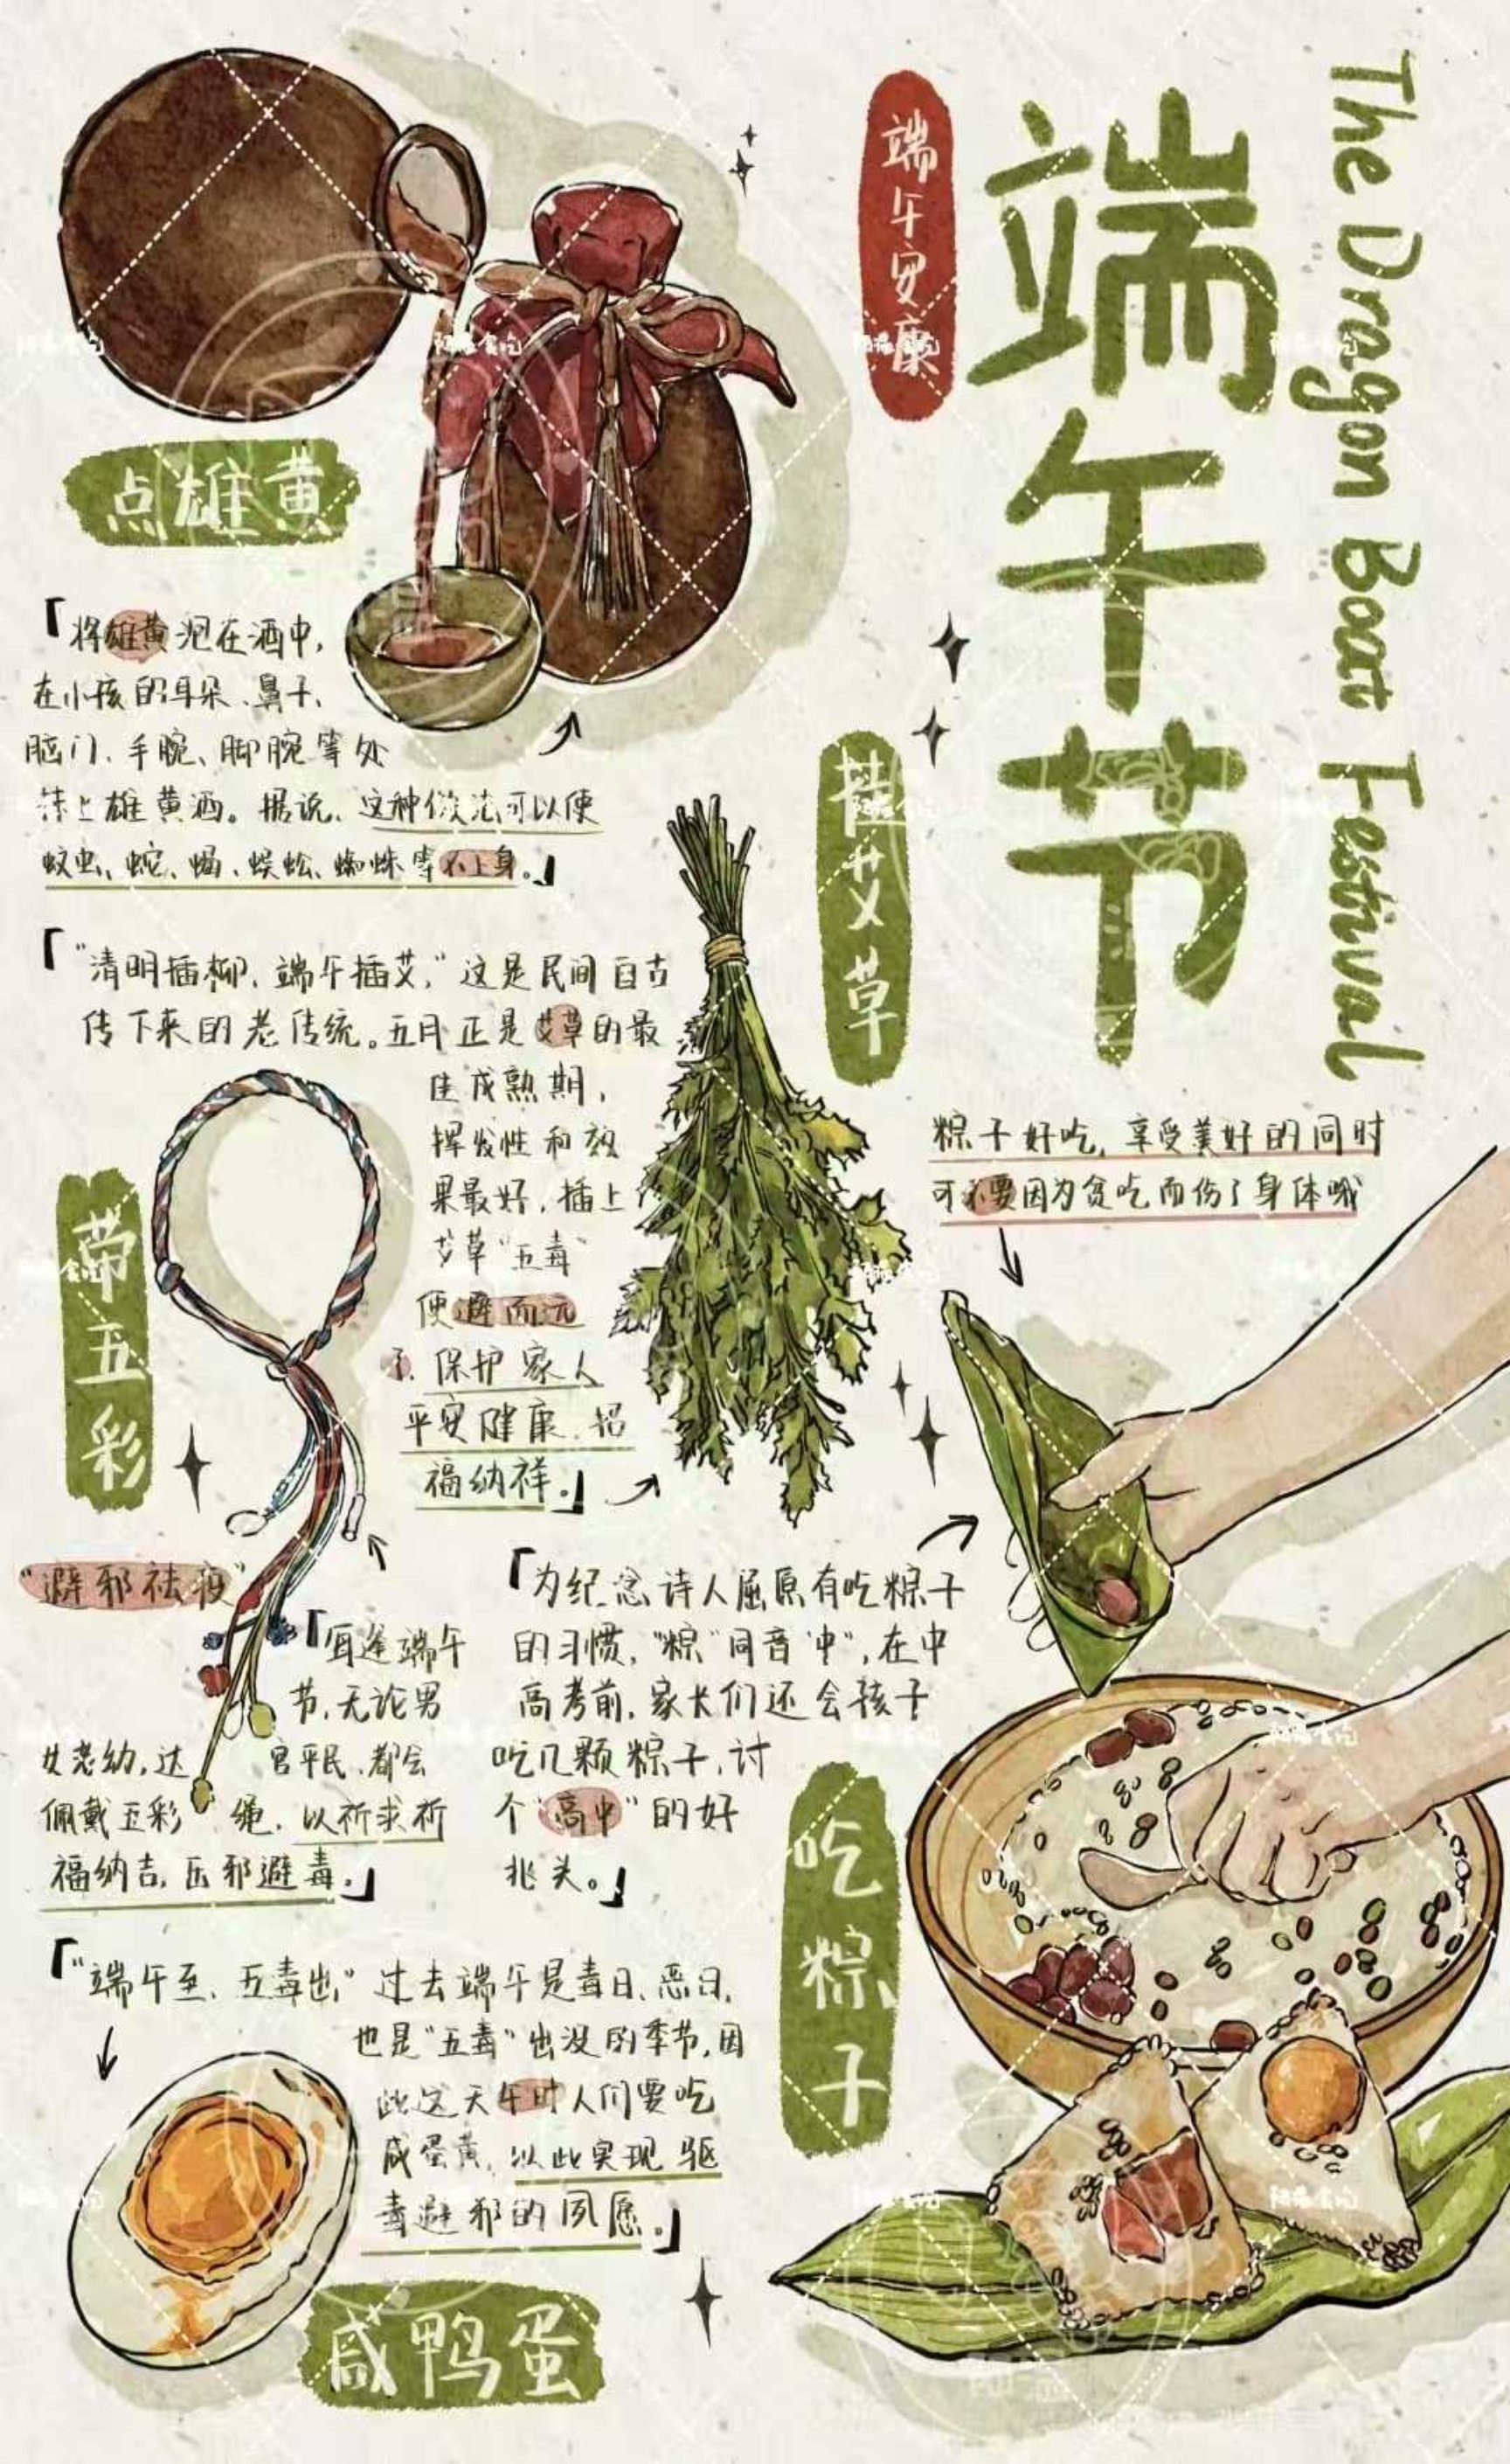 The Dragon Boat Festival
端午节
端午安康
点雄黄
「将雄黄泡在酒中,
在小孩的耳朵、鼻子、
脑门、手腕、脚腕等处
抹上雄黄酒。据说、这种做法可以使
蚊虫、蛇、蝎、蜈蚣、蜘蛛等不上身。」
挂艾草
「“清明插柳、端午插艾,”这是民间自古
传下来的老传统。五月正是艾草的最
佳成熟期,
挥发性和效
果最好,插上
艾草“五毒”
便避而远
了、保护家人
平安健康、招
福纳祥。」
带五彩
“避邪祛疫”
「每逢端午
节,无论男
女老幼,达官平民、都会
佩戴五彩绳、以祈求祈
福纳吉,压邪避毒。」
粽子好吃,享受美好的同时
可不要因为贪吃而伤了身体哦
「为纪念诗人屈原有吃粽子
的习惯,“粽”同音“中”,在中
高考前,家长们还会孩子
吃几颗粽子,讨
个“高中”的好
兆头。」
吃粽子
「“端午至、五毒出,”过去端午是毒日、恶日,
也是“五毒”出没的季节,因
此这天午时人们要吃
咸蛋黄,以此实现驱
毒避邪的夙愿。」
咸鸭蛋